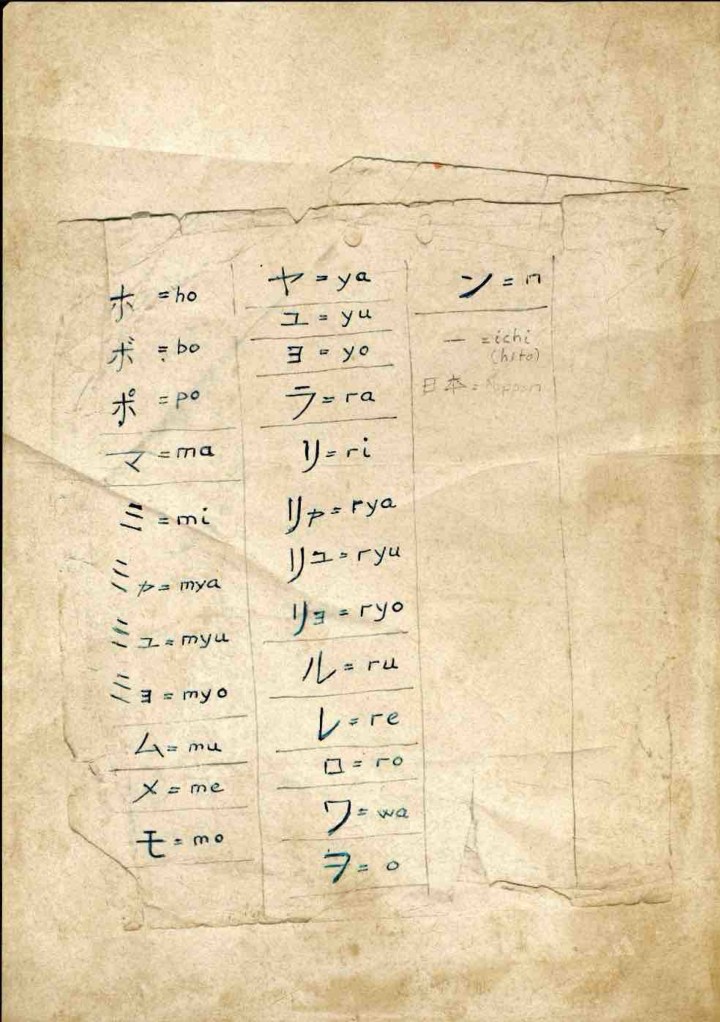 ホ = ho
ボ = bo
ポ = po
マ = ma
ミ = mi
ミャ = mya
ミュ = myu
ミョ = myo
ム = mu
メ = me
モ = mo
ヤ = ya
ユ = yu
ヨ = yo
ラ = ra
リ = ri
リャ = rya
リュ = ryu
リョ = ryo
ル = ru
レ = re
ロ = ro
ワ = wa
ヲ = o
ン = n
一 = ichi
(hito)
日本 = Nippon